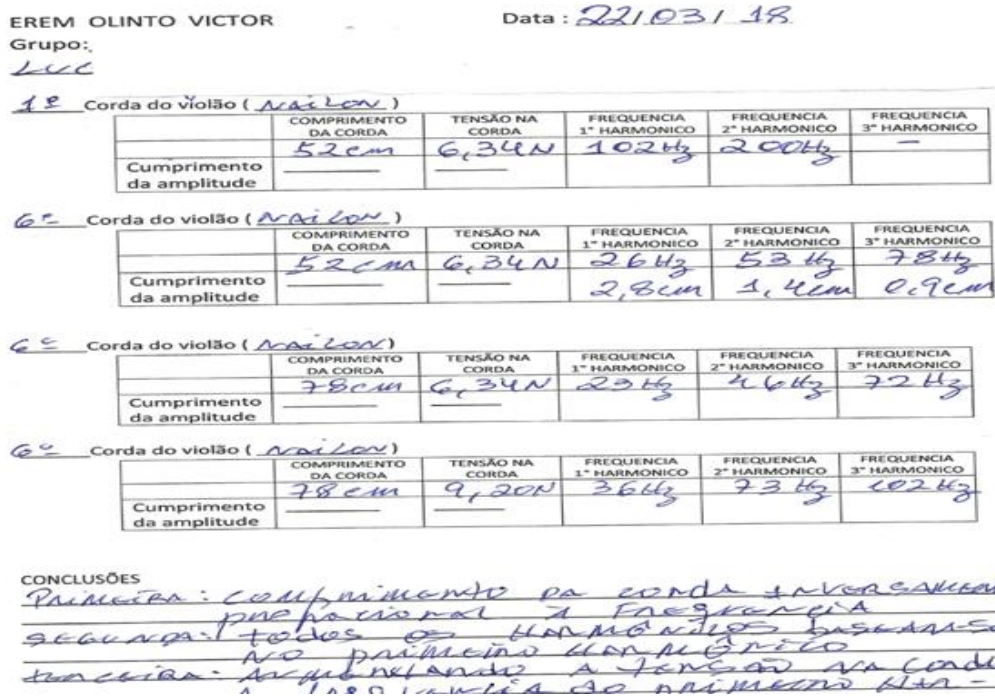 EREM OLINTO VICTOR Data: 22/03/18
Grupo:
LUC
1ª Corda do violão ( NAILON )
COMPRIMENTO DA CORDA TENSÃO NA CORDA FREQUENCIA 1° HARMONICO FREQUENCIA 2° HARMONICO FREQUENCIA 3° HARMONICO
52cm 6,34N 102Hz 200Hz —
Cumprimento da amplitude
6ª Corda do violão ( NAILON )
COMPRIMENTO DA CORDA TENSÃO NA CORDA FREQUENCIA 1° HARMONICO FREQUENCIA 2° HARMONICO FREQUENCIA 3° HARMONICO
52cm 6,34N 26Hz 53Hz 78Hz
Cumprimento da amplitude 2,8cm 1,4cm 0,9cm
6ª Corda do violão ( NAILON )
COMPRIMENTO DA CORDA TENSÃO NA CORDA FREQUENCIA 1° HARMONICO FREQUENCIA 2° HARMONICO FREQUENCIA 3° HARMONICO
78cm 6,34N 23Hz 46Hz 72Hz
Cumprimento da amplitude
6ª Corda do violão ( NAILON )
COMPRIMENTO DA CORDA TENSÃO NA CORDA FREQUENCIA 1° HARMONICO FREQUENCIA 2° HARMONICO FREQUENCIA 3° HARMONICO
78cm 9,20N 36Hz 73Hz 102Hz
Cumprimento da amplitude
CONCLUSÕES
PRIMEIRA: COMPRIMENTO DA CORDA
A FREQUENCIA
SEGUNDA: todos os HARMÔNICOS
NO PRIMEIRO HARMÔNICO
A TENSÃO NA CORDA
A DO PRIMEIRO